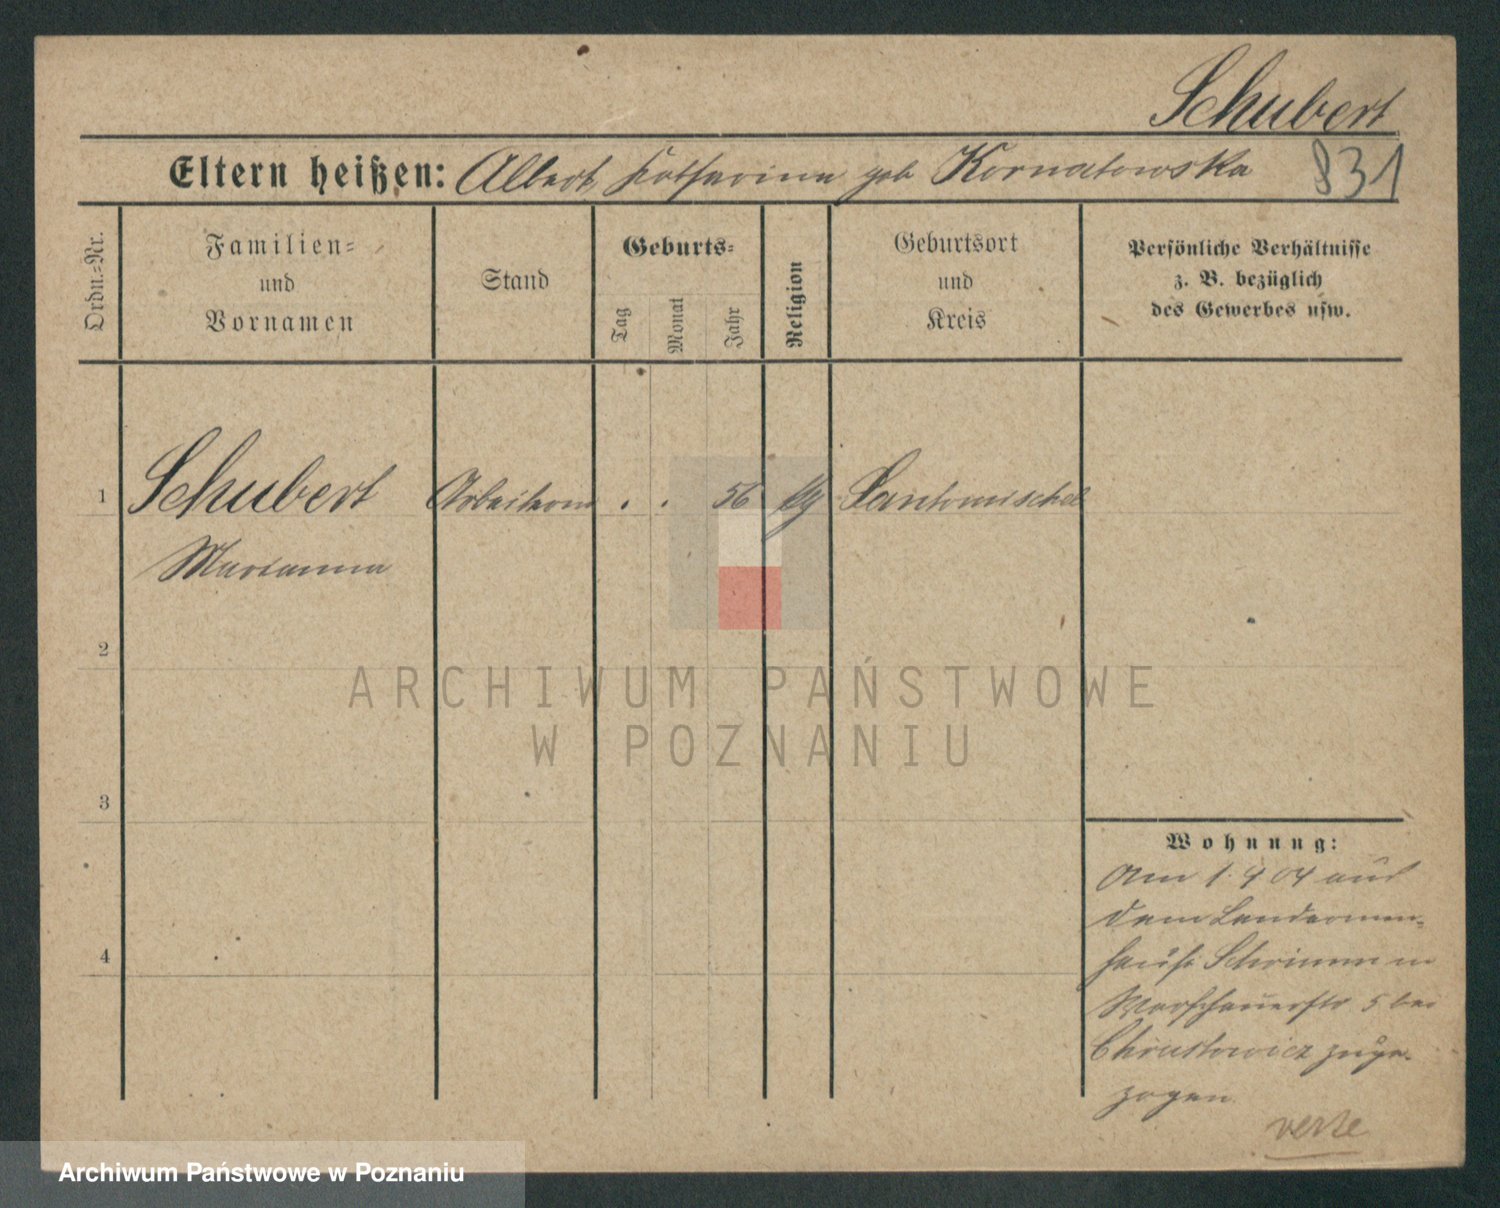 Schubert
Eltern heißen: Albert, Katharina geb Kornatowska 831
Ordn.=Nr.
Familien=
und
Vornamen
Stand
Geburts=
Tag
Monat
Jahr
Religion
Geburtsort
und
Kreis
Persönliche Verhältnisse
z. B. bezüglich
des Gewerbes usw.
1 Schubert . . 56 Santomischel
Marianna
2
3
4
Wohnung:
Am 1 4 04 aus
dem Landarmen-
hause Schrimm in
Warschauerstr 5 bei
zuge-
zogen
verte
ARCHIWUM PAŃSTWOWE
W POZNANIU
Archiwum Państwowe w Poznaniu